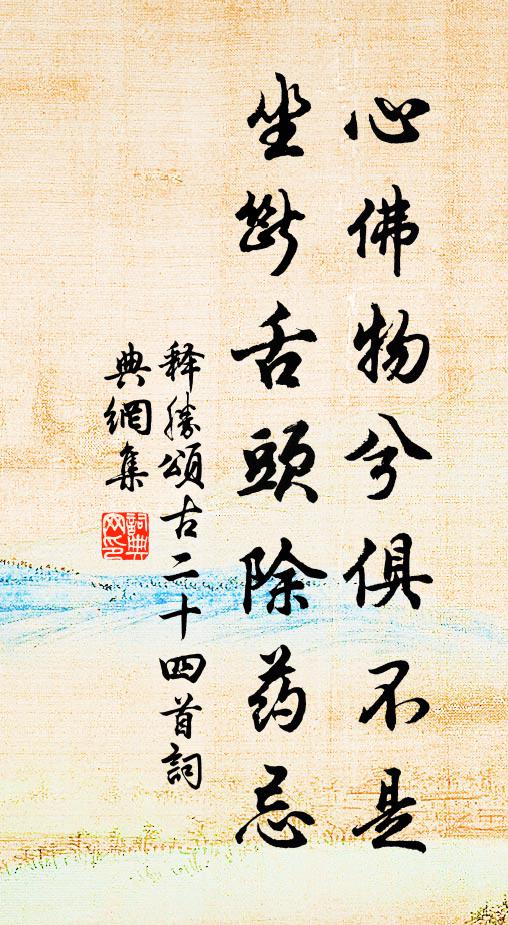 心佛物兮俱不是
坐断舌頭除药忌
释勝頌古二十四首詞
典網集
詞典
网印